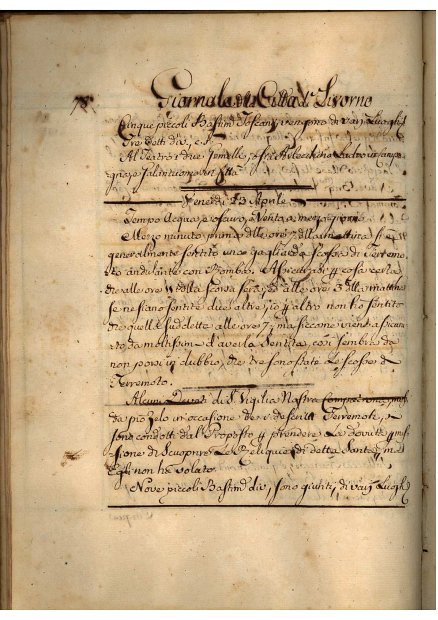 78
Giornale della Città di Livorno
Cinque piccoli Bastim.ti Toscani vengono di varj Luoghi
Tre detti di
Al Teatro
e Galantuomo
Venerdì 23 Aprile
Tempo Acqua, e oscuro, e Vento a mezzo giorno
Mezzo minuto prima delle ore 7 della mattina si è
generalmente sentito una gagliarda scossa di Terremo,
to andulante con Rombo. Asserendosi p cosa certa,
che alle ore 11 della scorsa sera, ed alle ore della mattina
se ne siano sentite due altre, io p altro non hò sentito
che quelle suddette alle ore 7, ma siccome viene assicura,
to da moltissimi d'averla Sentita, così sembra da
non porsi in dubbio, che trè sono state Le scosse di
Terremoto.
Alcuni Devoti di S. Vigilia Nostra
da pio Zelo in occasione de descritti Terremoti, si
sono condotti dal Proposto p prendere Le dovute p mis,
sione di Scuoprire Le Reliquie di detta Santa, mà
Egli non hà volsuto.
Nove piccoli Bastim.ti div. sono giunti di varj Luoghi